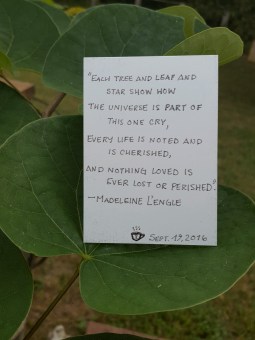 "EACH TREE AND LEAF AND
STAR SHOW HOW
THE UNIVERSE IS PART OF
THIS ONE CRY,
EVERY LIFE IS NOTED AND
IS CHERISHED,
AND NOTHING LOVED IS
EVER LOST OR PERISHED".
—MADELEINE L'ENGLE
SEPT. 17, 2016